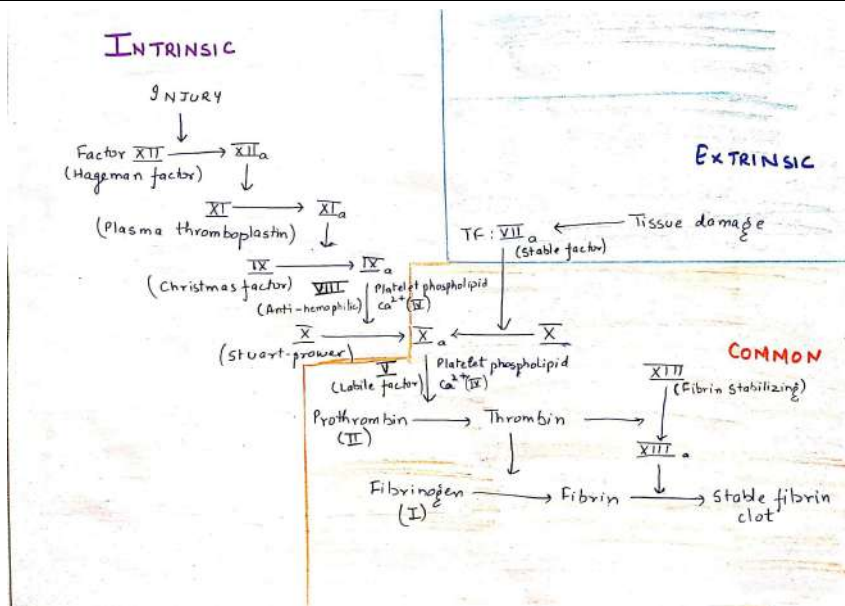 INTRINSIC
INJURY
Factor XII → XIIa
(Hageman factor)
XI → XIa
(Plasma thromboplastin)
IX → IXa
(Christmas factor)
VIII
(Anti-hemophilic)
Platelet phospholipid
Ca²⁺(IV)
X → Xa ← X
(Stuart-prower)
EXTRINSIC
TF:VIIa ← Tissue damage
(Stable factor)
COMMON
V
(Labile factor)
Platelet phospholipid
Ca²⁺(IV)
Prothrombin → Thrombin →
(II)
XIII
(Fibrin stabilizing)
XIIIa
Fibrinogen → Fibrin → Stable fibrin
(I)
clot